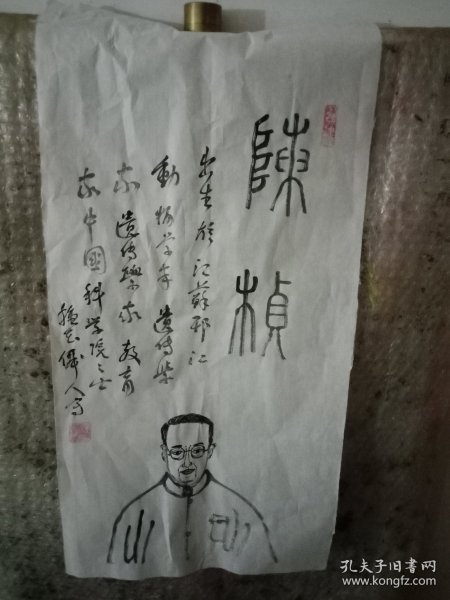 陳楨
出生於江蘇邗江
動物学家 遺傳学
家 遺傳学家 教育
家中國科学院院士
人写
孔夫子旧书网
www.kongfz.com